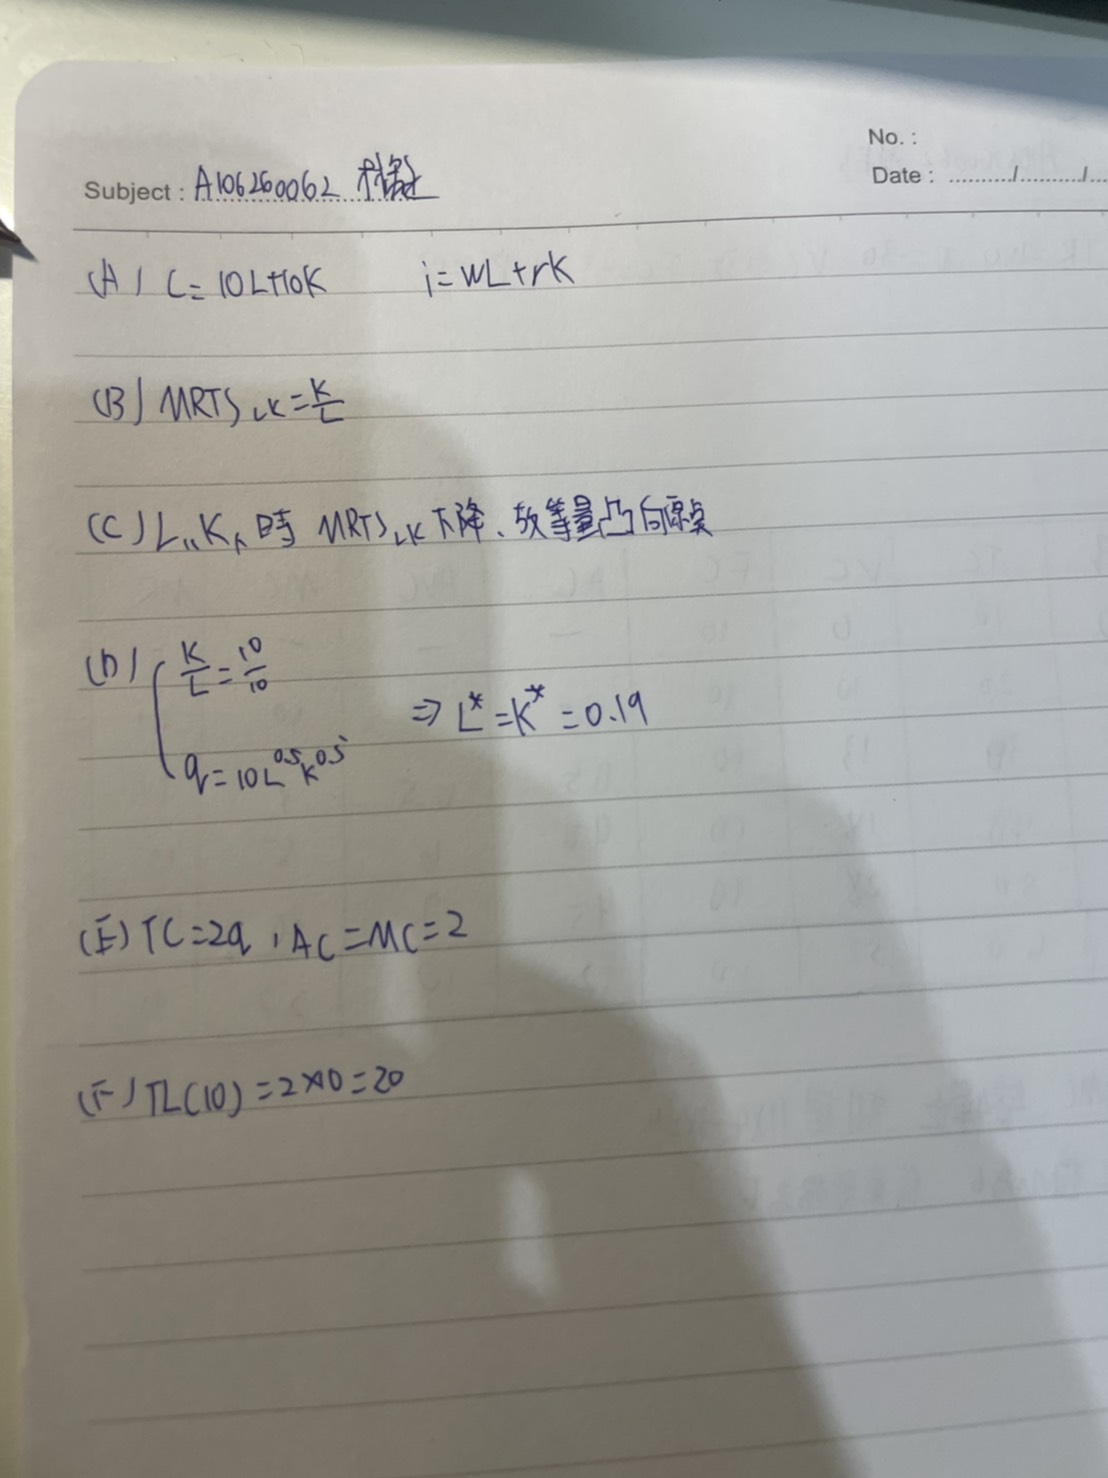 No. :
Date : ........../........../...
Subject : A106260062 林
(A) C = 10L+10K i = wL+rK
(B) MRTS LK = K/L
(C) L K 時 MRTS LK 下降、故等量凸向原點
(D) { K/L = 10/10
⇒ L* = K* = 0.19
q = 10L^0.5 K^0.5
(E) TC = 2q , AC = MC = 2
(F) TC(10) = 2×10 = 20